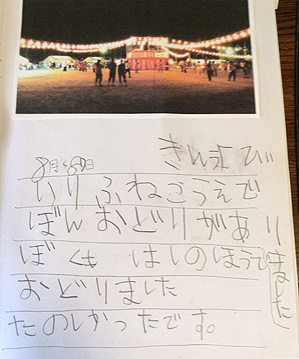 8月8日 きんよび
いりふねこうえで
ぼんおどりがありました
ぼくも はしのほうで
おどりました
たのしかったです。